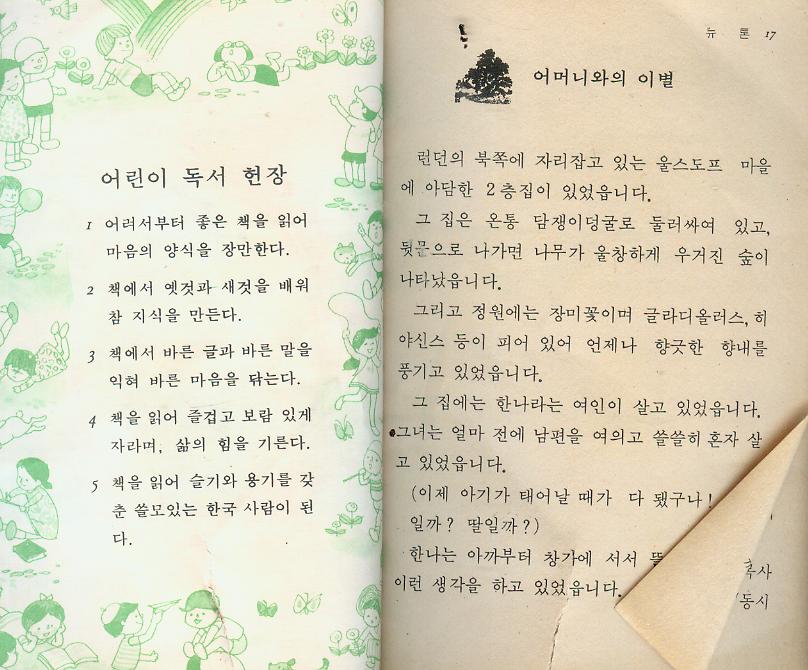 어린이 독서 헌장
1 어려서부터 좋은 책을 읽어
마음의 양식을 장만한다.
2 책에서 옛것과 새것을 배워
참 지식을 만든다.
3 책에서 바른 글과 바른 말을
익혀 바른 마음을 닦는다.
4 책을 읽어 즐겁고 보람 있게
자라며, 삶의 힘을 기른다.
5 책을 읽어 슬기와 용기를 갖
춘 쓸모있는 한국 사람이 된
다.
뉴 톤 17
어머니와의 이별
런던의 북쪽에 자리잡고 있는 울스도프 마을
에 아담한 2층집이 있었읍니다.
그 집은 온통 담쟁이덩굴로 둘러싸여 있고,
뒷문으로 나가면 나무가 울창하게 우거진 숲이
나타났읍니다.
그리고 정원에는 장미꽃이며 글라디올러스, 히
야신스 등이 피어 있어 언제나 향긋한 향내를
풍기고 있었읍니다.
그 집에는 한나라는 여인이 살고 있었읍니다.
그녀는 얼마 전에 남편을 여의고 쓸쓸히 혼자 살
고 있었읍니다.
(이제 아기가 태어날 때가 다 됐구나!
일까? 딸일까?)
한나는 아까부터 창가에 서서 뜰
이런 생각을 하고 있었읍니다.
동시